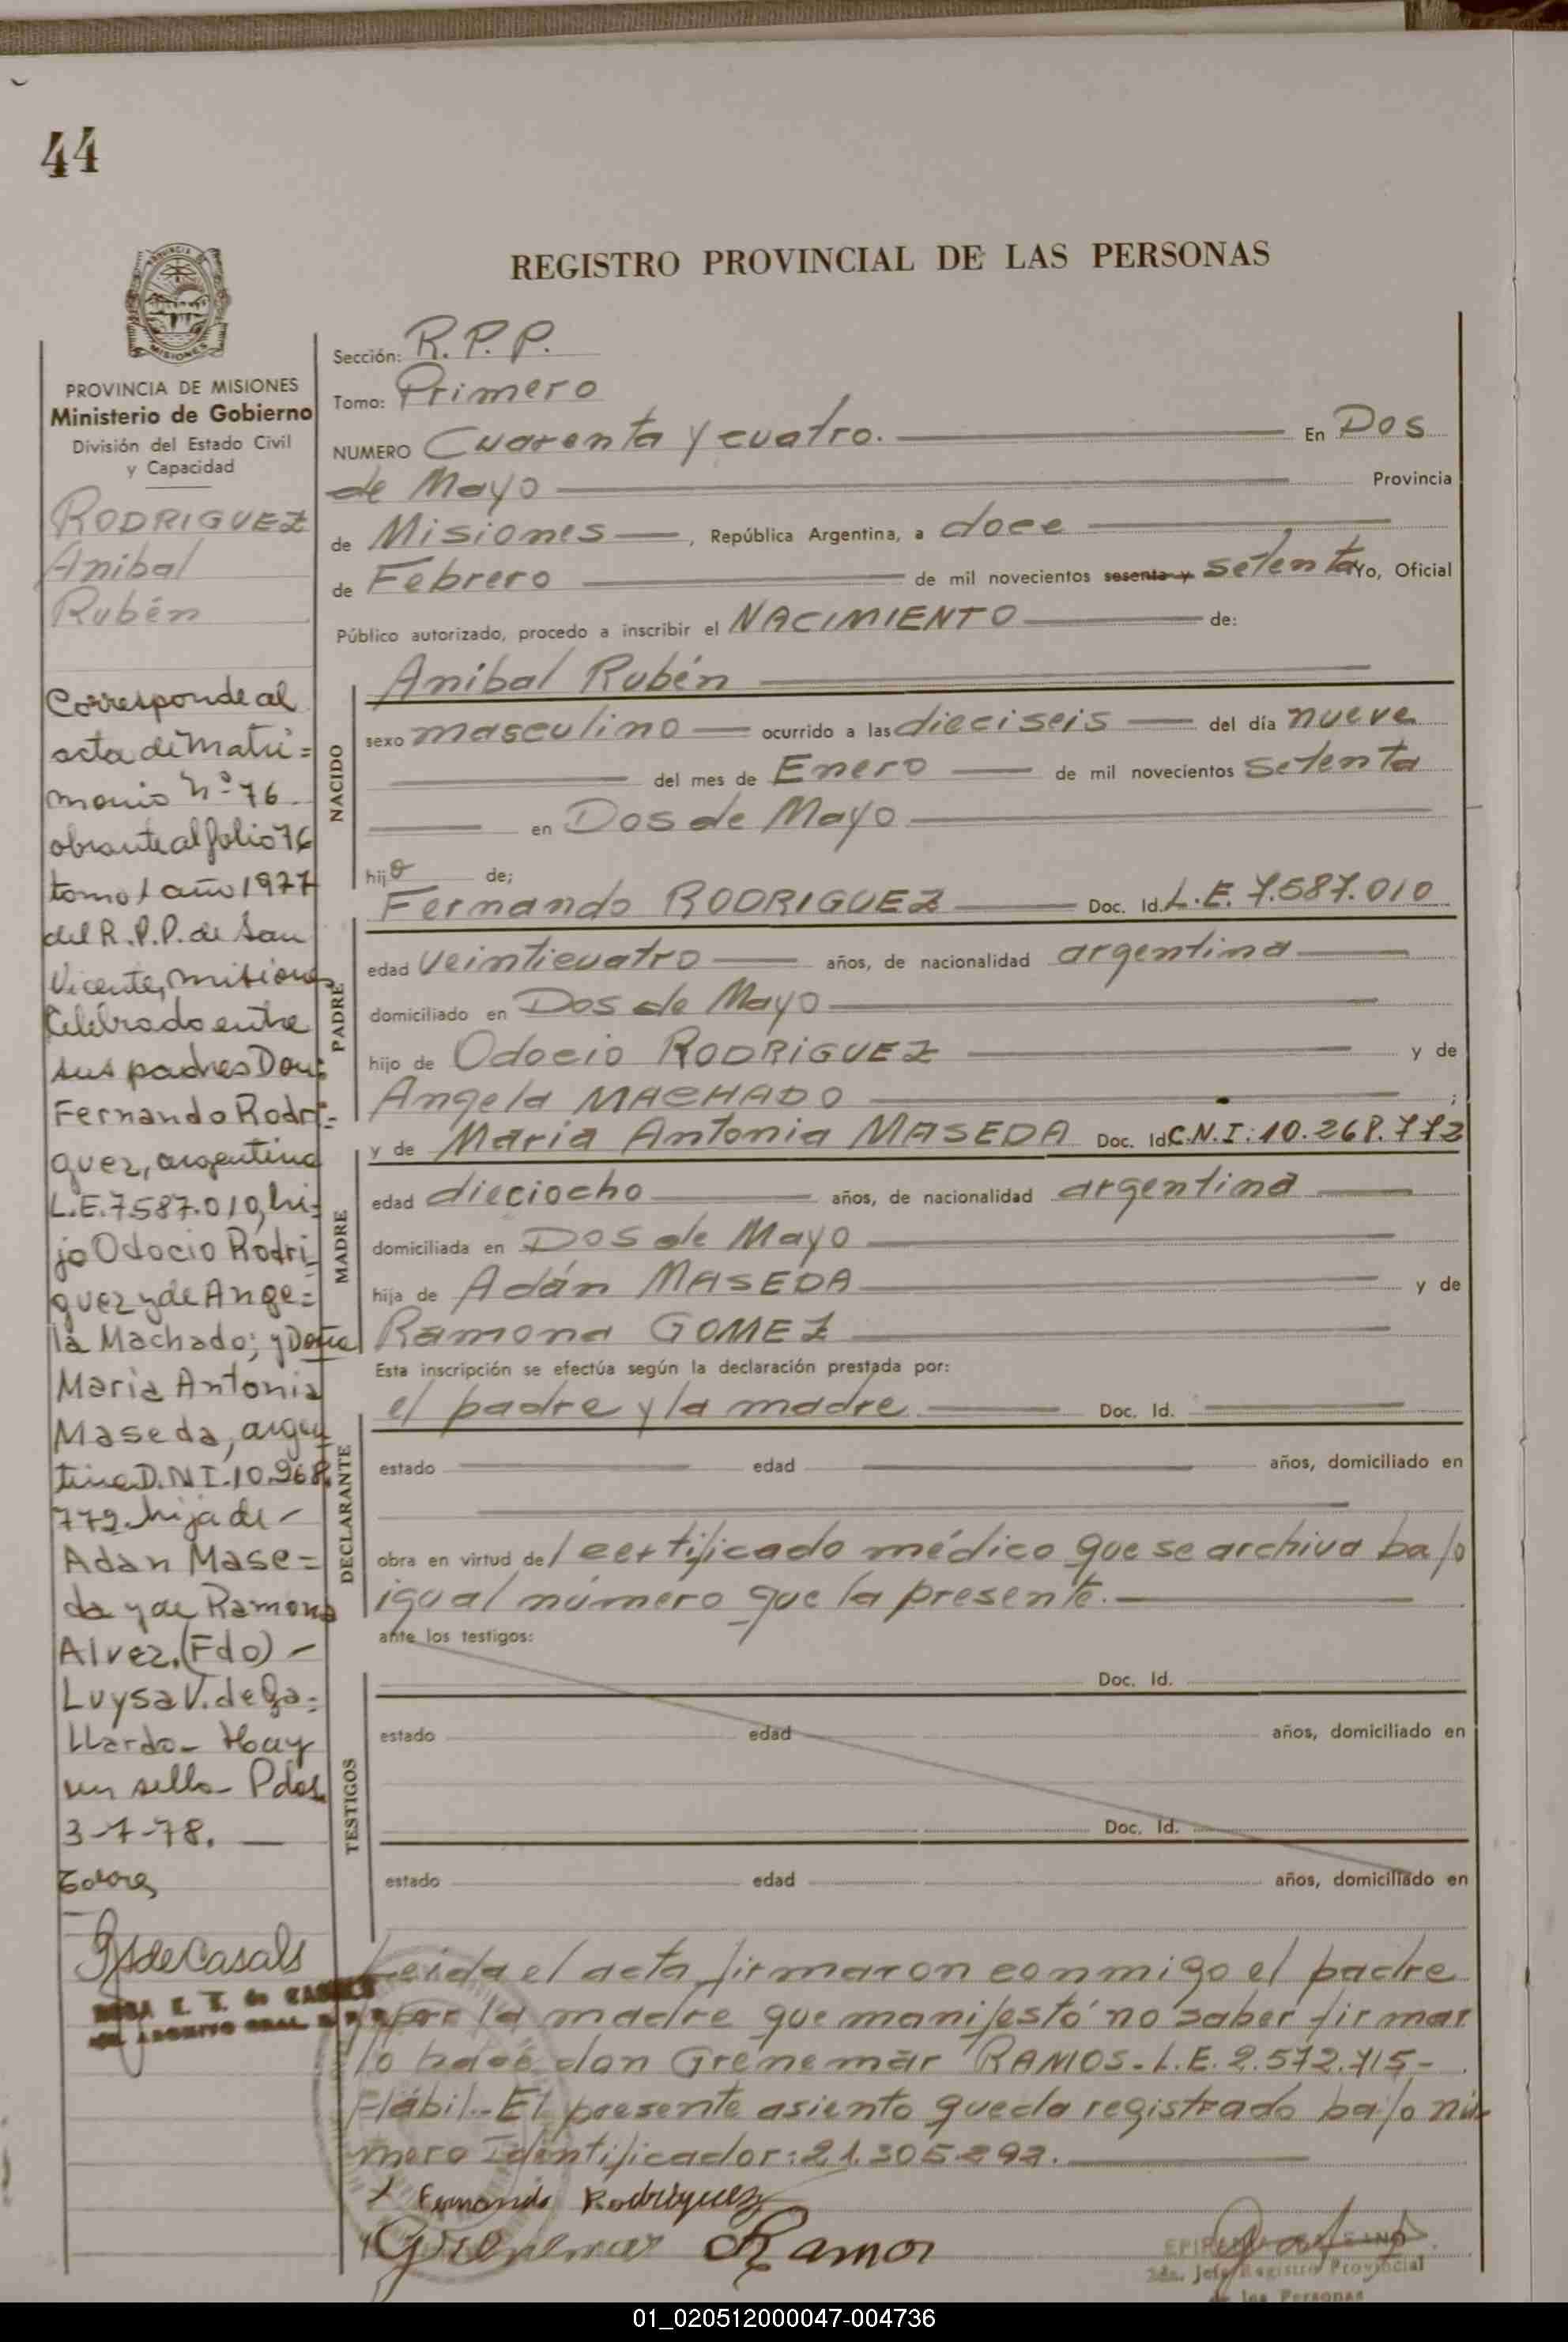 44
REGISTRO PROVINCIAL DE LAS PERSONAS
PROVINCIA DE MISIONES
Ministerio de Gobierno
División del Estado Civil
y Capacidad
RODRIGUEZ
Anibal
Rubén
Corresponde al
acta de Matri=
monio Nº 76
obrante al folio 76
tomo 1 año 1977
del R.P.P. de San
Vicente, Misiones
Celebrado entre
sus padres Don:
Fernando Rodri=
guez, argentino
L.E. 7.587.010, hi=
jo Odocio Rodri=
guez y de Ange=
la Machado; y Doña
Maria Antonia
Maseda, argen
tina D.N.I. 10.268.
772. hija de -
Adan Mase=
da y de Ramona
Alvez. (Fdo) -
Luysa V. de Ga=
llardo - Hay
un sello - Pdas.
3-7-78. —
Sección: R.P.P.
Tomo: Primero
NUMERO Cuarenta y cuatro. En Dos
de Mayo Provincia
de Misiones, República Argentina, a doce
de Febrero de mil novecientos sesenta y setenta Yo, Oficial
Público autorizado, procedo a inscribir el NACIMIENTO de:
NACIDO
Anibal Rubén
sexo masculino ocurrido a las dieciseis del día nueve
del mes de Enero de mil novecientos setenta
en Dos de Mayo
hijo de;
PADRE
Fernando RODRIGUEZ Doc. Id. L.E. 7.587.010
edad veinticuatro años, de nacionalidad argentina
domiciliado en Dos de Mayo
hijo de Odocio RODRIGUEZ y de
Angela MACHADO ;
MADRE
y de Maria Antonia MASEDA Doc. Id. C.N.I: 10.268.772
edad dieciocho años, de nacionalidad argentina
domiciliada en Dos de Mayo
hija de Adán MASEDA y de
Ramona GOMEZ
Esta inscripción se efectúa según la declaración prestada por:
DECLARANTE
el padre y la madre Doc. Id.
estado edad años, domiciliado en
obra en virtud del certificado médico que se archiva bajo
igual número que la presente.
ante los testigos:
TESTIGOS
Doc. Id.
estado edad años, domiciliado en
Doc. Id.
estado edad años, domiciliado en
Leida el acta firmaron conmigo el padre
y por la madre que manifestó no saber firmar
lo hace don Grenemar RAMOS. L.E. 2.572.715-
Hábil.- El presente asiento queda registrado bajo nú-
mero Identificador: 21.305.292.
Fernando Rodriguez
Grenemar Ramos
de Casals
2da. Jefe Registro Provincial
de las Personas
01_020512000047-004736